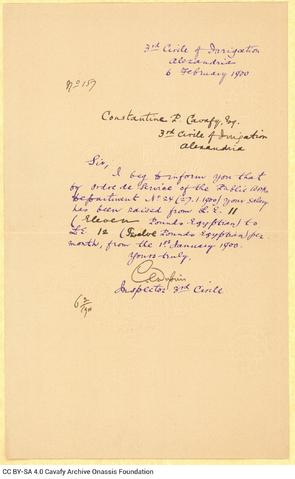 3rd Circle of Irrigation
Alexandria
6 February 1900
No 157
Constantine P. Cavafy, Esq.
3rd Circle of Irrigation
Alexandria
Sir,
I beg to inform you that
by ordre de service of the Public Works
Department No 24 (27.1.1900) your salary
has been raised from L.E. 11
(Eleven Pounds Egyptian) to
L.E. 12 (Twelve Pounds Egyptian) per
month, from the 1st January 1900.
Yours truly,
Inspector 3rd Circle
CC BY-SA 4.0 Cavafy Archive Onassis Foundation